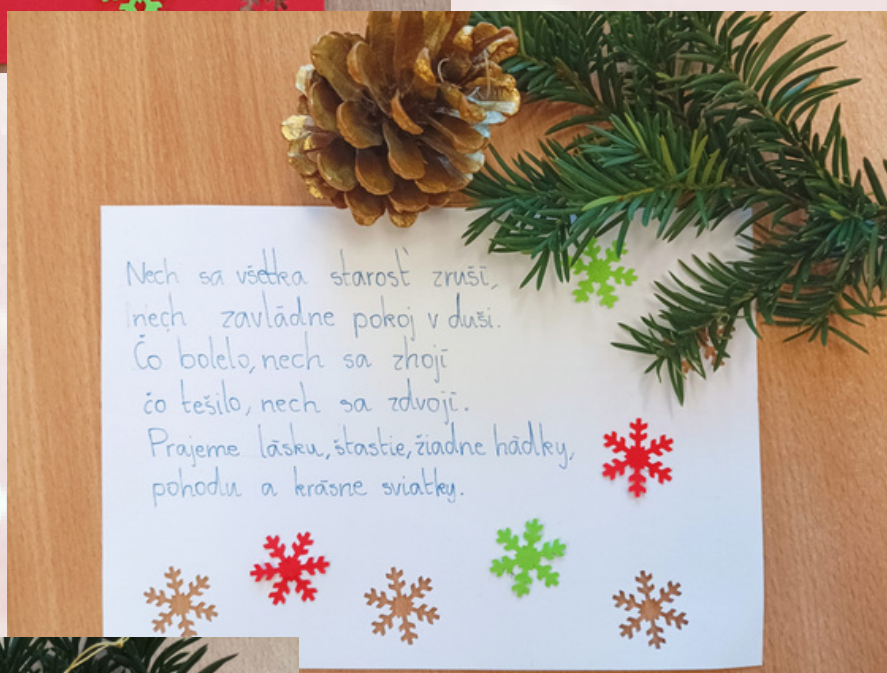 Nech sa všetka starosť zruší,
nech zavládne pokoj v duši.
Čo bolelo, nech sa zhojí
čo tešilo, nech sa zdvojí.
Prajeme lásku, štastie, žiadne hádky,
pohodu a krásne sviatky.